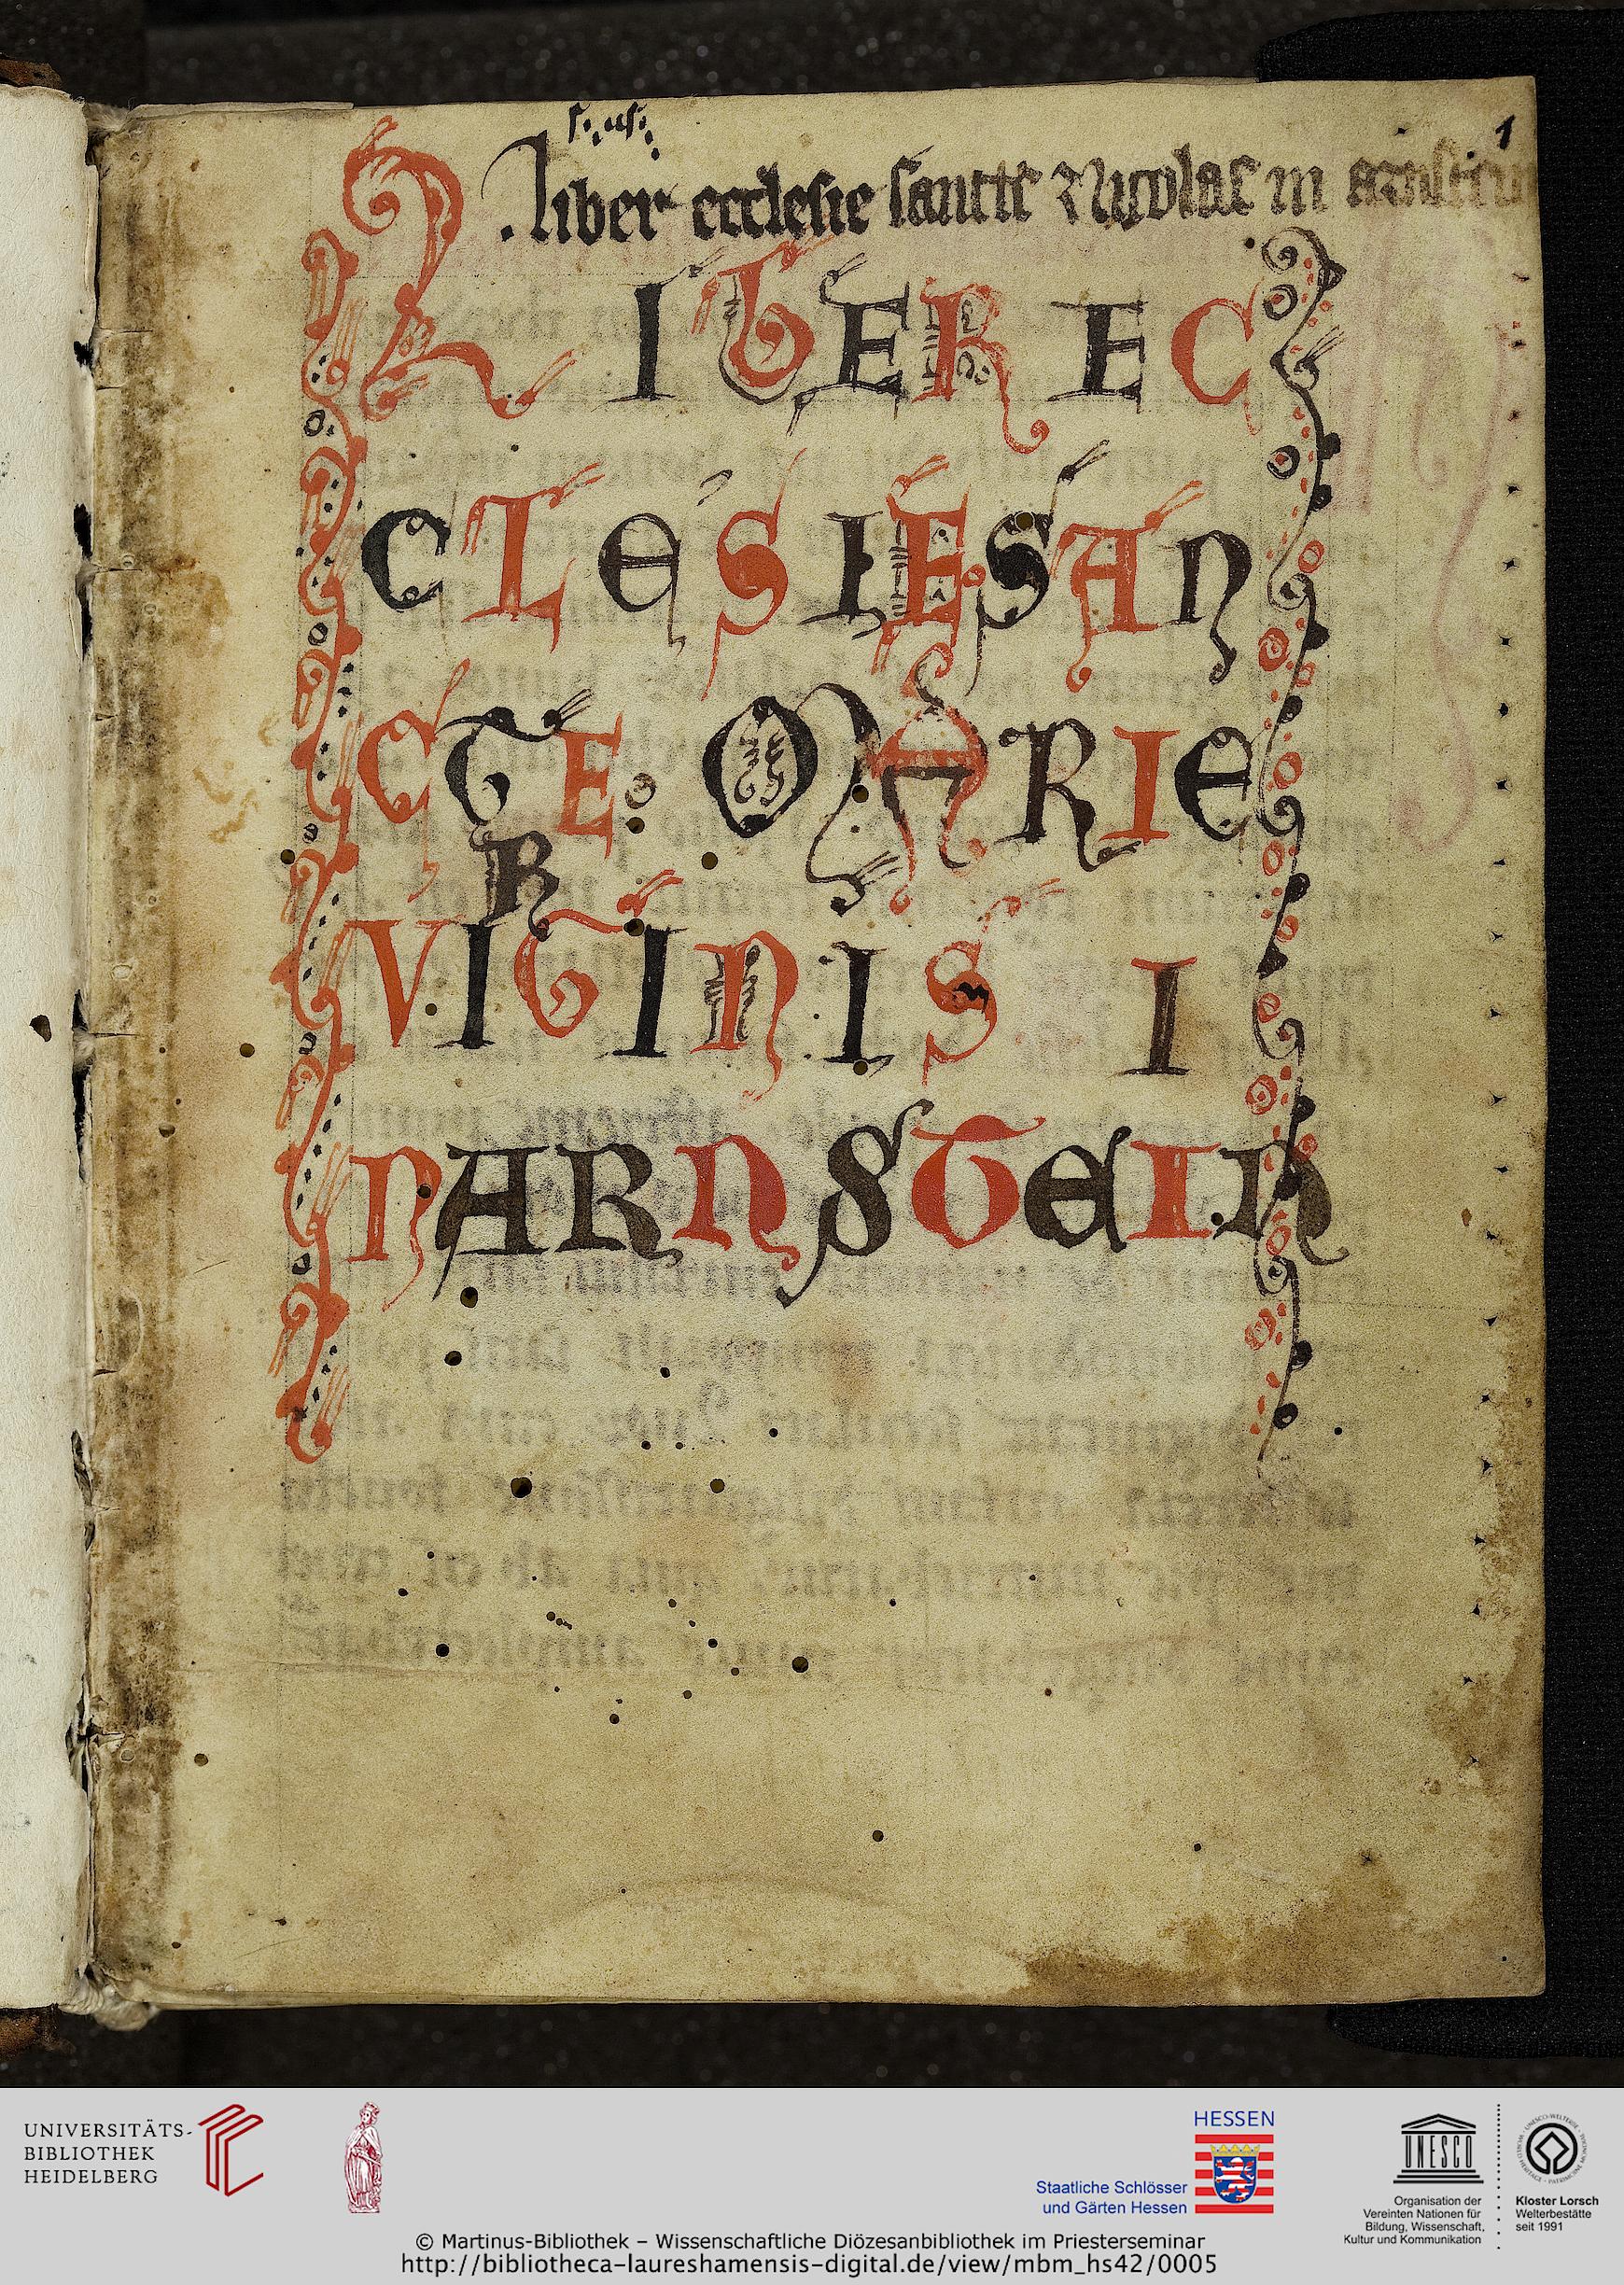 1
.liber ecclesie sancte Nycolae in arnstein
LIBER EC
CLESIE SAN
CTE MARIE
R
VIGINIS I
N ARNSTEIN
UNIVERSITÄTS-
BIBLIOTHEK
HEIDELBERG
HESSEN
Staatliche Schlösser
und Gärten Hessen
UNESCO
Organisation der
Vereinten Nationen für
Bildung, Wissenschaft,
Kultur und Kommunikation
Kloster Lorsch
Welterbestätte
seit 1991
© Martinus-Bibliothek – Wissenschaftliche Diözesanbibliothek im Priesterseminar
http://bibliotheca-laureshamensis-digital.de/view/mbm_hs42/0005